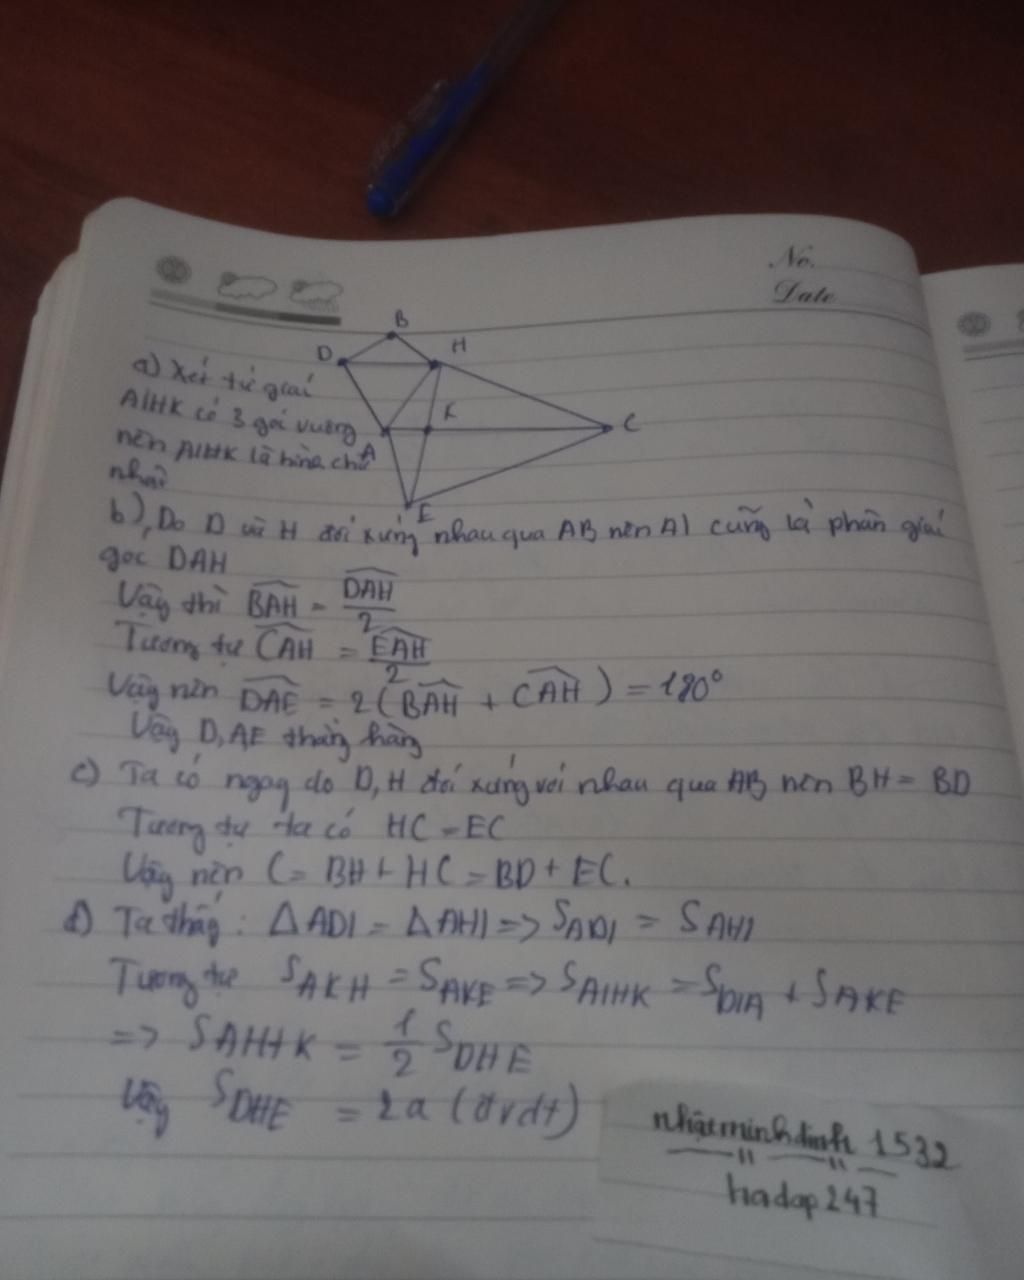 No.
Date
B
D
H
K
C
A
E
a) Xét tứ giác
AIHK có 3 góc vuông
nên AIHK là hình chữ
nhật
b), Do D và H đối xứng nhau qua AB nên AI cũng là phân giác
góc DAH
Vậy thì BAH = DAH/2
Tương tự CAH = EAH/2
Vậy nên DAE = 2(BAH + CAH) = 180°
Vậy D, AE thẳng hàng
c) Ta có ngay do D, H đối xứng với nhau qua AB nên BH = BD
Tương tự ta có HC = EC
Vậy nên C = BH + HC = BD + EC.
d) Ta thấy: ΔADI = ΔAHI => SADI = SAHI
Tương tự SAKH = SAKE => SAIHK = SDIA + SAKE
=> SAHHK = 1/2 SDHE
Vậy SDHE = 2a (đvdt)
nhậtminhđinh 1532
hadap247